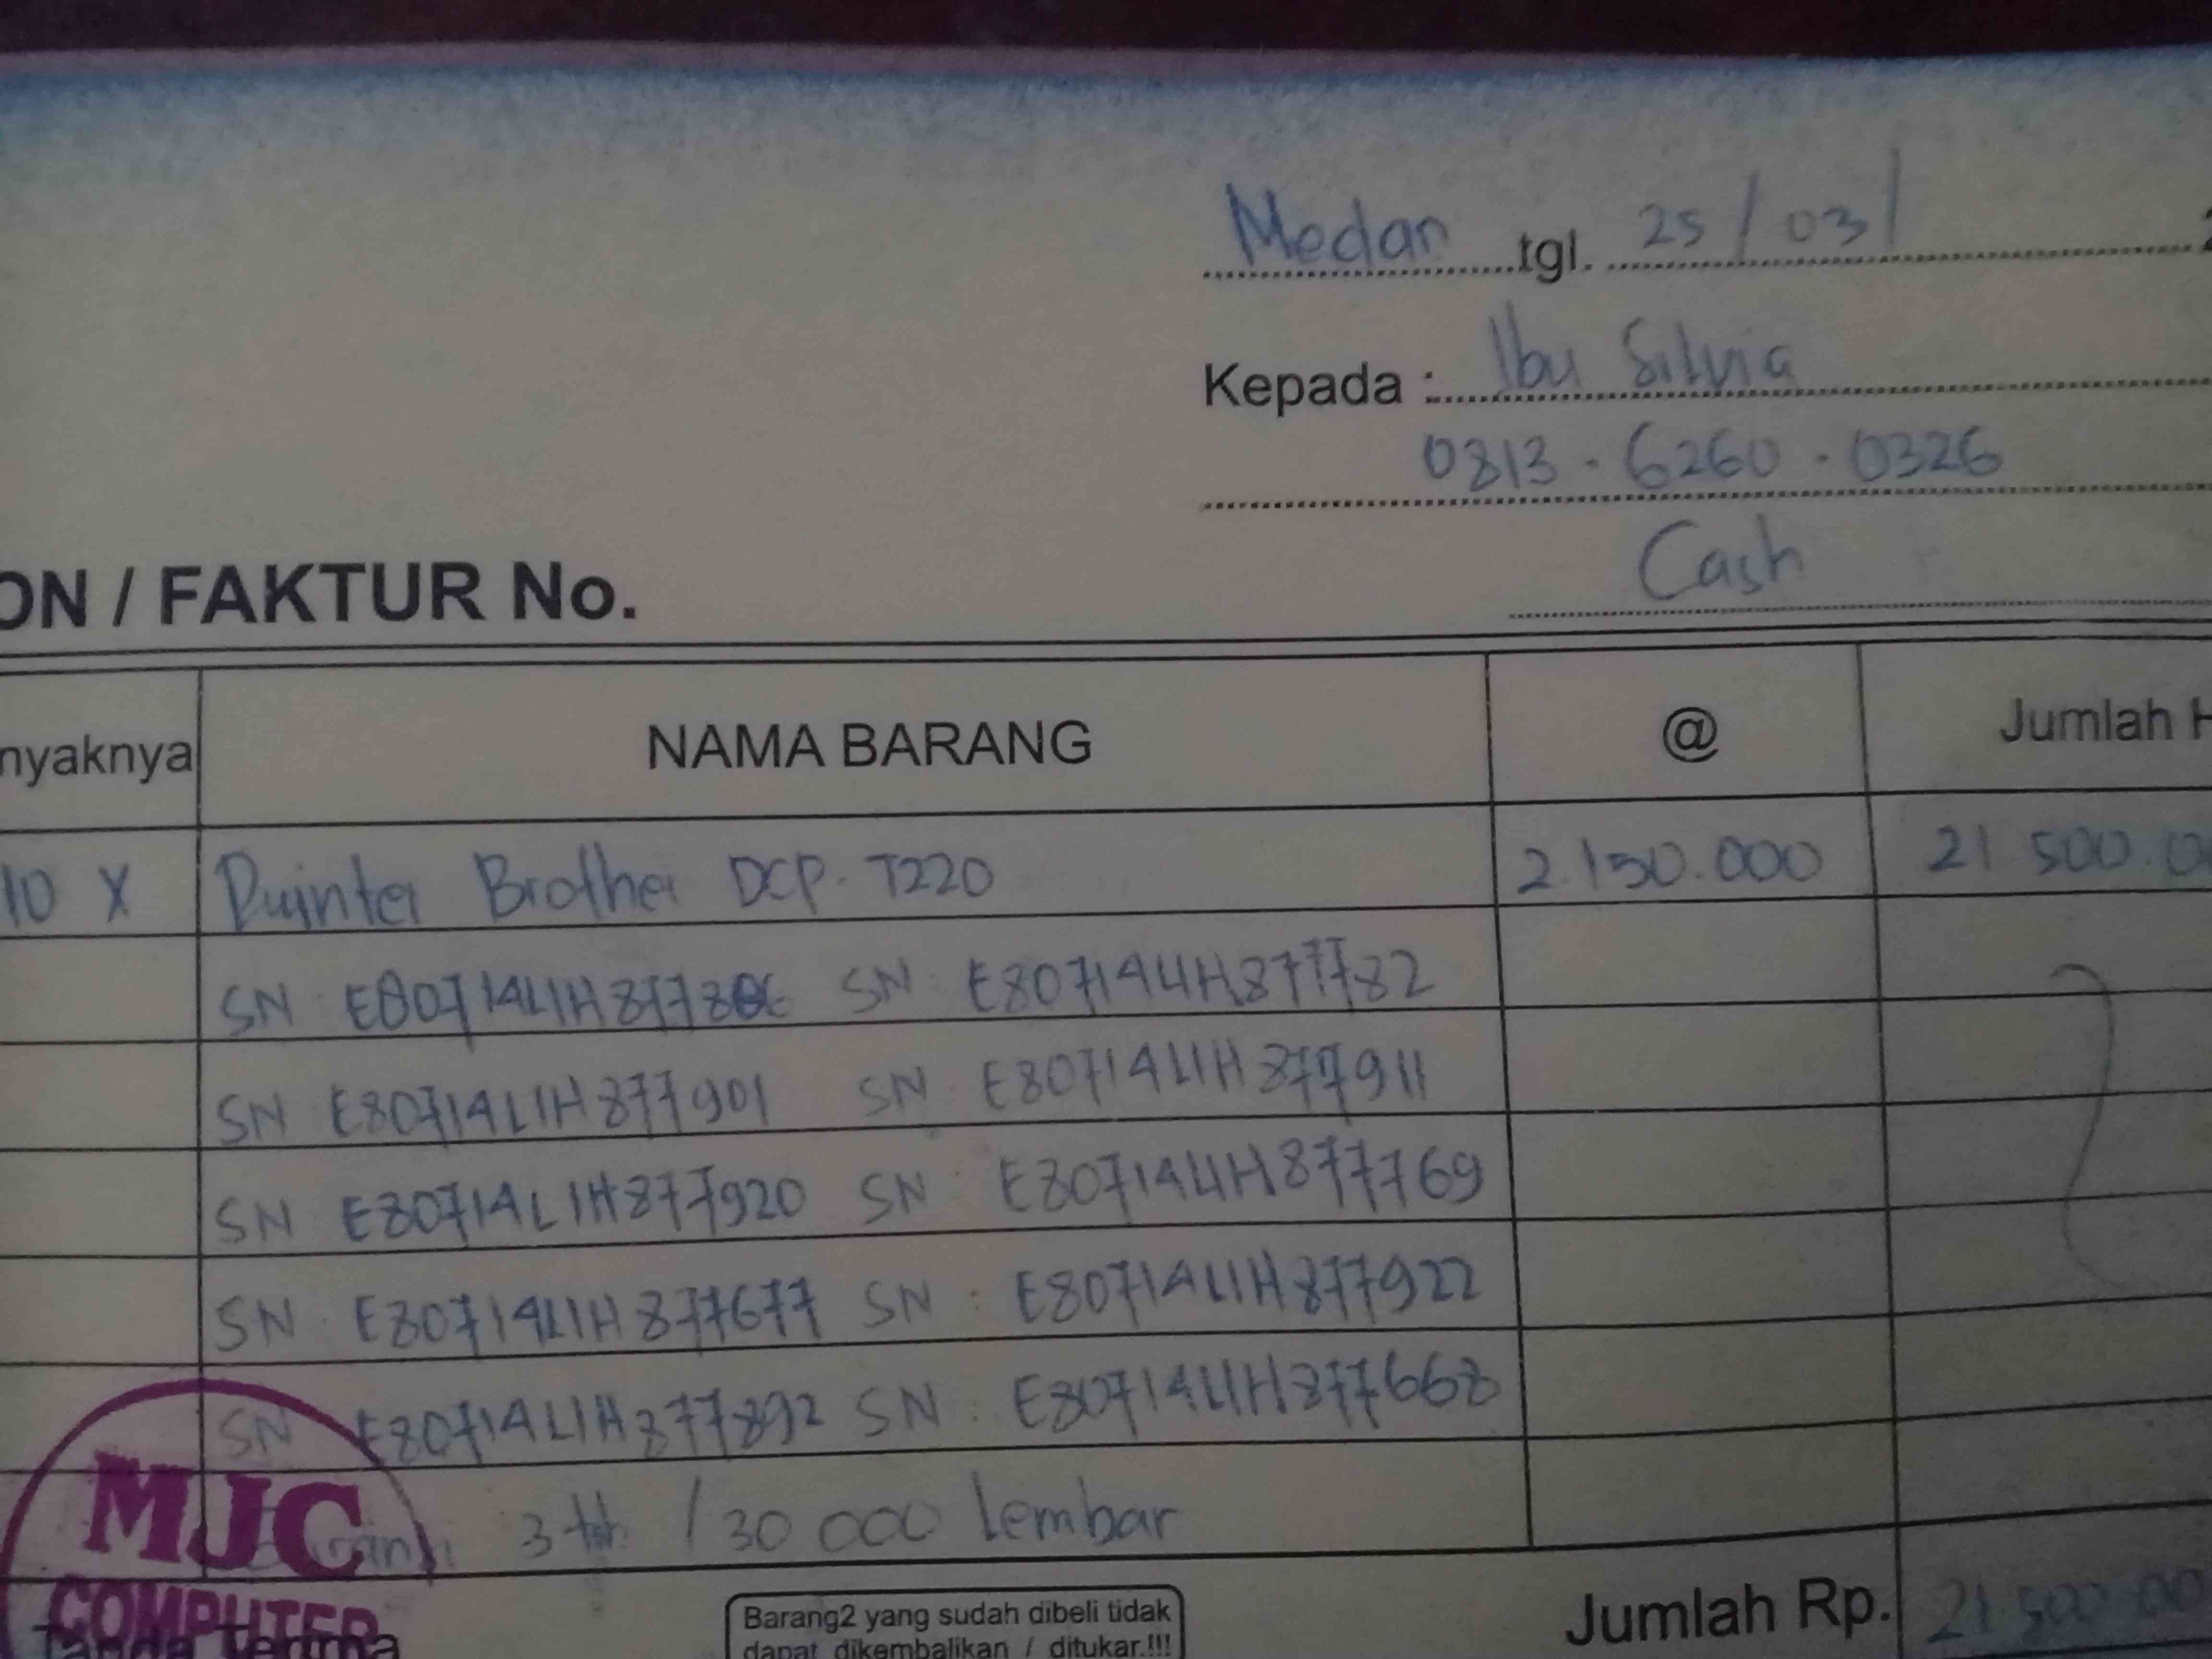 Medan tgl. 25/03/
Kepada : Ibu Silvia
0813 - 6260 - 0326
Cash
ON / FAKTUR No.
nyaknya NAMA BARANG @ Jumlah H
10 X Printer Brother DCP-T220 2.150.000 21 500.00
SN E80714L1H877886 SN E80714L1H877782
SN E80714L1H877901 SN E80714L1H877911
SN E80714L1H877920 SN : E80714L1H877769
SN E80714L1H877677 SN : E80714L1H877922
SN E80714L1H877892 SN : E80714L1H877668
Garansi 3 thn / 30 000 Lembar
MJC
COMPUTER
Tanda Terima
Barang2 yang sudah dibeli tidak
dapat dikembalikan / ditukar.!!!
Jumlah Rp. 21.500 00